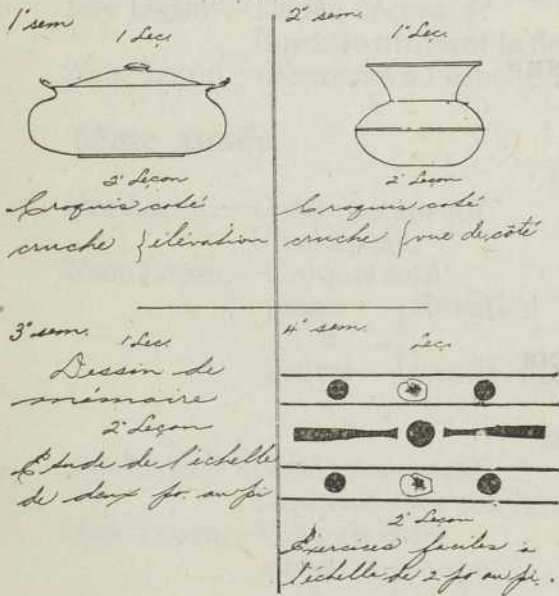 1e sem.
1 Leç.
2e Leçon
Croquis coté
cruche { élévation
2e sem.
1e Leç.
2e Leçon
Croquis coté
cruche { vue de côté
3e sem.
1 Leç.
Dessin de
mémoire
2e Leçon
Etude de l'échelle
de deux po. au pi
4e sem.
Leç.
2e Leçon
Exercices faciles à
l'échelle de 2 po au pi.